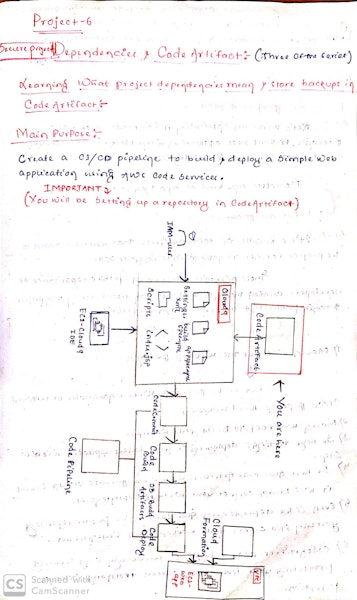 Project-6
Secure project Dependencies & Code Artifact:- (Three of the series)
Learning What project dependencies mean & store backups in
Code Artifact:-
Main Purpose:-
Create a CI/CD pipeline to build & deploy a simple web
application using AWS Code Services.
IMPORTANT
(You will be setting up a repository in CodeArtifact)
IAM-user
Cloud9
Settings.xml
build spec.yml
appspec.yml
Scripts
< >
index.jsp
EC2-Cloud9
IDE
CodeArtifact
You are here
CodeCommit
Code Build
Code Pipeline
S3-Build
Artifacts
Code Deploy
Cloud Formation
VPC
EC2
Web
APP
CS Scanned with
CamScanner